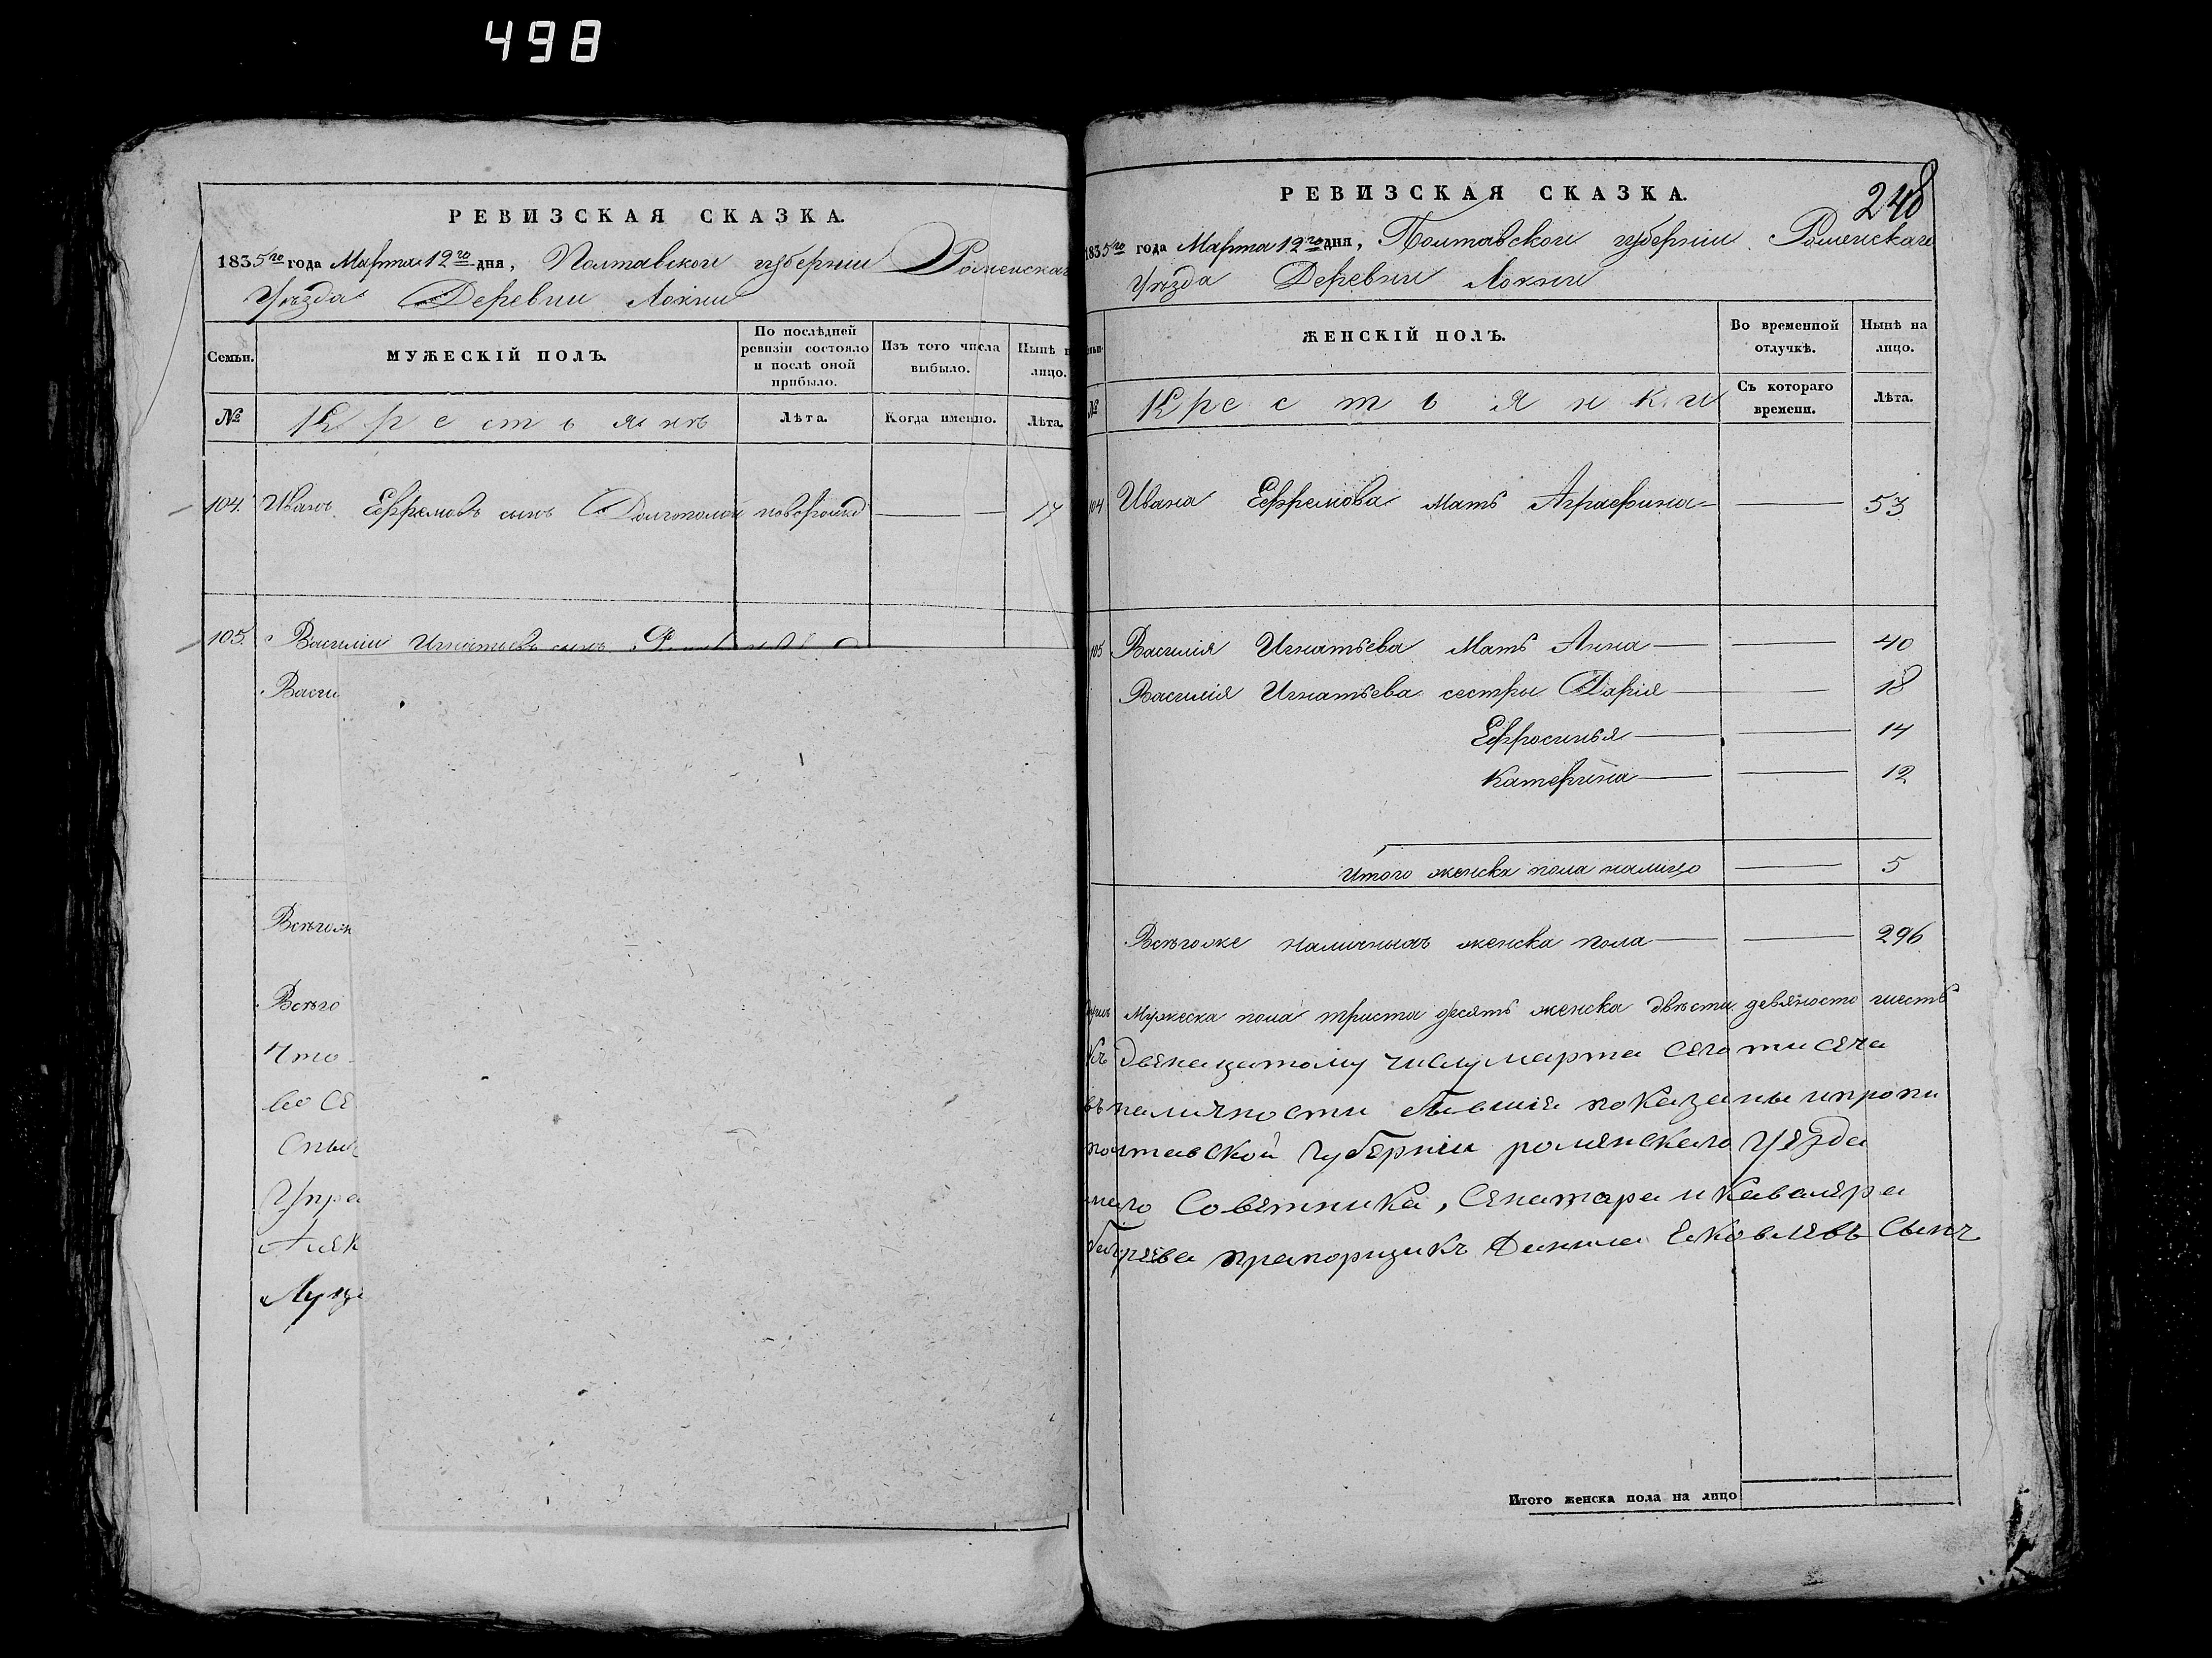 498
РЕВИЗСКАЯ СКАЗКА.
1835го года Марта 12го дня, Полтавской губерніи Роменскаг
Уѣзда Деревни Локни
Семьи.
МУЖЕСКІЙ ПОЛЪ.
По послѣдней ревизіи состояло и послѣ оной прибыло.
Изъ того числа выбыло.
Нынѣ н лицо.
№
Крестьянъ
Лѣта.
Когда именно.
Лѣта.
104. Иванъ Ефремовъ сынъ Долгополой новорожд — — 17
105. Василій Игнатьевъ сынъ
Васи
Всегож
Всего
Что
во се
Спис
Упра
Алек
Луце
248
РЕВИЗСКАЯ СКАЗКА.
1835го года Марта 12го дня, Полтавской губерніи Роменскаго
Уѣзда Деревни Локни
ЖЕНСКІЙ ПОЛЪ.
Во временной отлучкѣ.
Нынѣ на лицо.
№
Крестьянки
Съ котораго времени.
Лѣта.
104 Ивана Ефремова мать Аграефина — — 53
105 Василія Игнатьева Мать Анна — — 40
Василія Игнатьева сестры Дарія — — 18
Ефросинья — — 14
Катерина — — 12
Итого женска пола налицо — 5
Всѣгоже наличныхъ женска пола — — 296
Мужеска пола триста десять женска двѣсти девяносто шесть
Къ двенацатому числу марта сего
въ наличности бывшие показаны и пропи
полтавской губернии роменскаго уезда
наго Советника, Сенатара и Кавалера
прапорщикъ Данила Ековлевъ Сынъ
Итого женска пола на лицо